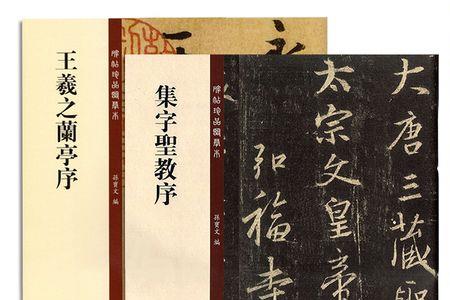 王羲之蘭亭序
碑帖珍品臨摹本
孫寶文 編
永
集字聖教序
碑帖珍品臨摹本
孫寶文 編
大唐三藏聖
太宗文皇帝
弘福寺